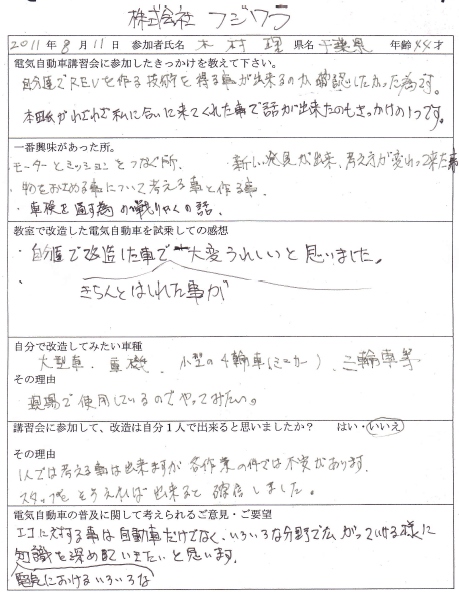 株式会社 フジワラ
2011年 8月 11日 参加者氏名 木村 理 県名 千葉県 年齢 44才
電気自動車講習会に参加したきっかけを教えて下さい。
自分達でREVを作る技術を得る事が出来るのか確認したかった為です。
本田氏がわざわざ私に合いに来てくれた事で話が出来たのもきっかけの1つです。
一番興味があった所。
・モーターとミッションをつなぐ所. 新しい発見が出来、考え方が変わって来た事
・物をおさめる事について考える事と作る事.
・車検を通す為の戦りゃくの話.
教室で改造した電気自動車を試乗しての感想
・自分達で改造した車で大変うれしいと思いました。
・きちんとはしれた事が
自分で改造してみたい車種
大型車. 重機. 小型の4輪車(ミニカー). 二輪車等
その理由
現場で使用しているのでやってみたい。
講習会に参加して、改造は自分1人で出来ると思いましたか? はい・いいえ
その理由
1人では考える事は出来ますが各作業の件では不安があります.
スタッフをそろえれば出来ると確信しました。
電気自動車の普及に関して考えられるご意見・ご要望
エコに対する事は自動車だけでなく、いろいろな分野で広がっていける様に
知識を深めていきたいと思います.
電気におけるいろいろな